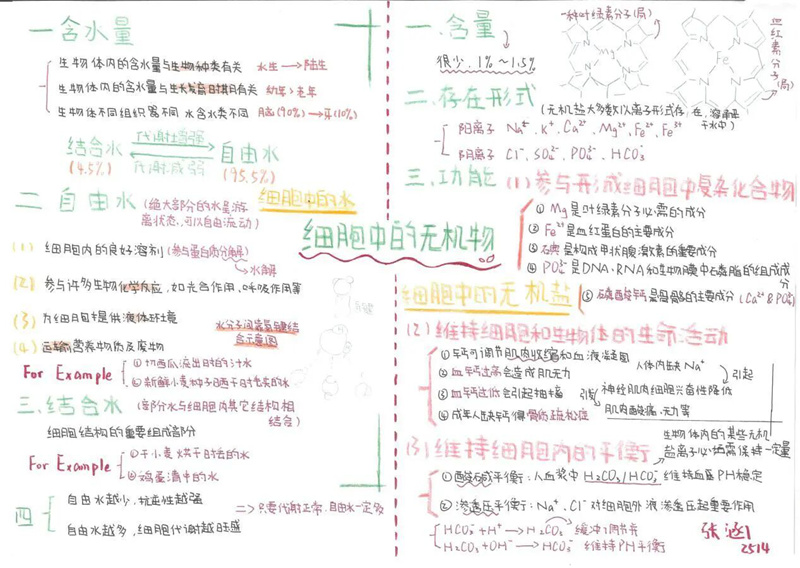 一 含水量
生物体内的含水量与生物种类有关 水生→陆生
生物体内的含水量与生长发育日期有关 幼年>老年
生物体不同组织器官不同 水含水类不同 脑(90%)→牙(10%)
结合水 代谢增强 自由水
(4.5%) 代谢减弱 (95.5%)
二 自由水 (绝大部分的水是游
离状态,可以自由流动)
细胞中的水
细胞中的无机物
(1) 细胞内的良好溶剂 (参与蛋白质分解)
水解
(2) 参与许多生物化学反应,如光合作用、呼吸作用等
(3) 为细胞提供液体环境
水分子间靠氢键结
合示意图
氢键
(4) 运输营养物质及废物
For Example
①切西瓜流出时的汁水
②新鲜小麦种子晒干时失去的水
三.结合水 (部分水与细胞内其它结构相
结合)
细胞结构的重要组成部分
For Example
①干小麦烘干时失去的水
②鸡蛋清中的水
四
自由水越少,抗逆性越强
自由水越多,细胞代谢越旺盛
=>只要代谢正常,自由水一定多
一.含量
很少.1%~1.5%
一种叶绿素分子(局)
Mg
血红素分子(局)
Fe
二.存在形式 (无机盐大多数以离子形式存在,溶解于水中)
阳离子 Na⁺、K⁺、Ca²⁺、Mg²⁺、Fe²⁺、Fe³⁺
阴离子 Cl⁻、SO₄²⁻、PO₄³⁻、HCO₃⁻
三.功能 (1)参与形成细胞中复杂化合物
① Mg是叶绿素分子必需的成分
② Fe²⁺是血红蛋白的主要成分
③ 碘是构成甲状腺激素的重要成分
④ PO₄³⁻是DNA、RNA和生物膜中磷脂的组成成分
⑤ 磷酸钙是骨骼的主要成分 (Ca²⁺&PO₄³⁻)
细胞中的无机盐
(2)维持细胞和生物体的生命活动
①钙可调节肌肉收缩和血液凝固
②血钙过高会造成肌无力
③血钙过低会引起抽搐
④成年人缺钙得骨质疏松症
人体内缺Na⁺
引起
神经肌肉细胞兴奋性降低
引发
肌肉酸痛、无力等
(3)维持细胞内的平衡
生物体内的某些无机
盐离子必须需保持一定量
①酸碱平衡:人血浆中H₂CO₃/HCO₃⁻维持血浆PH稳定
②渗透压平衡:Na⁺、Cl⁻对细胞外液渗透压起重要作用
HCO₃⁻+H⁺→H₂CO₃ 缓冲、调节并
H₂CO₃+OH⁻→HCO₃⁻ 维持PH平衡
张涵
2514